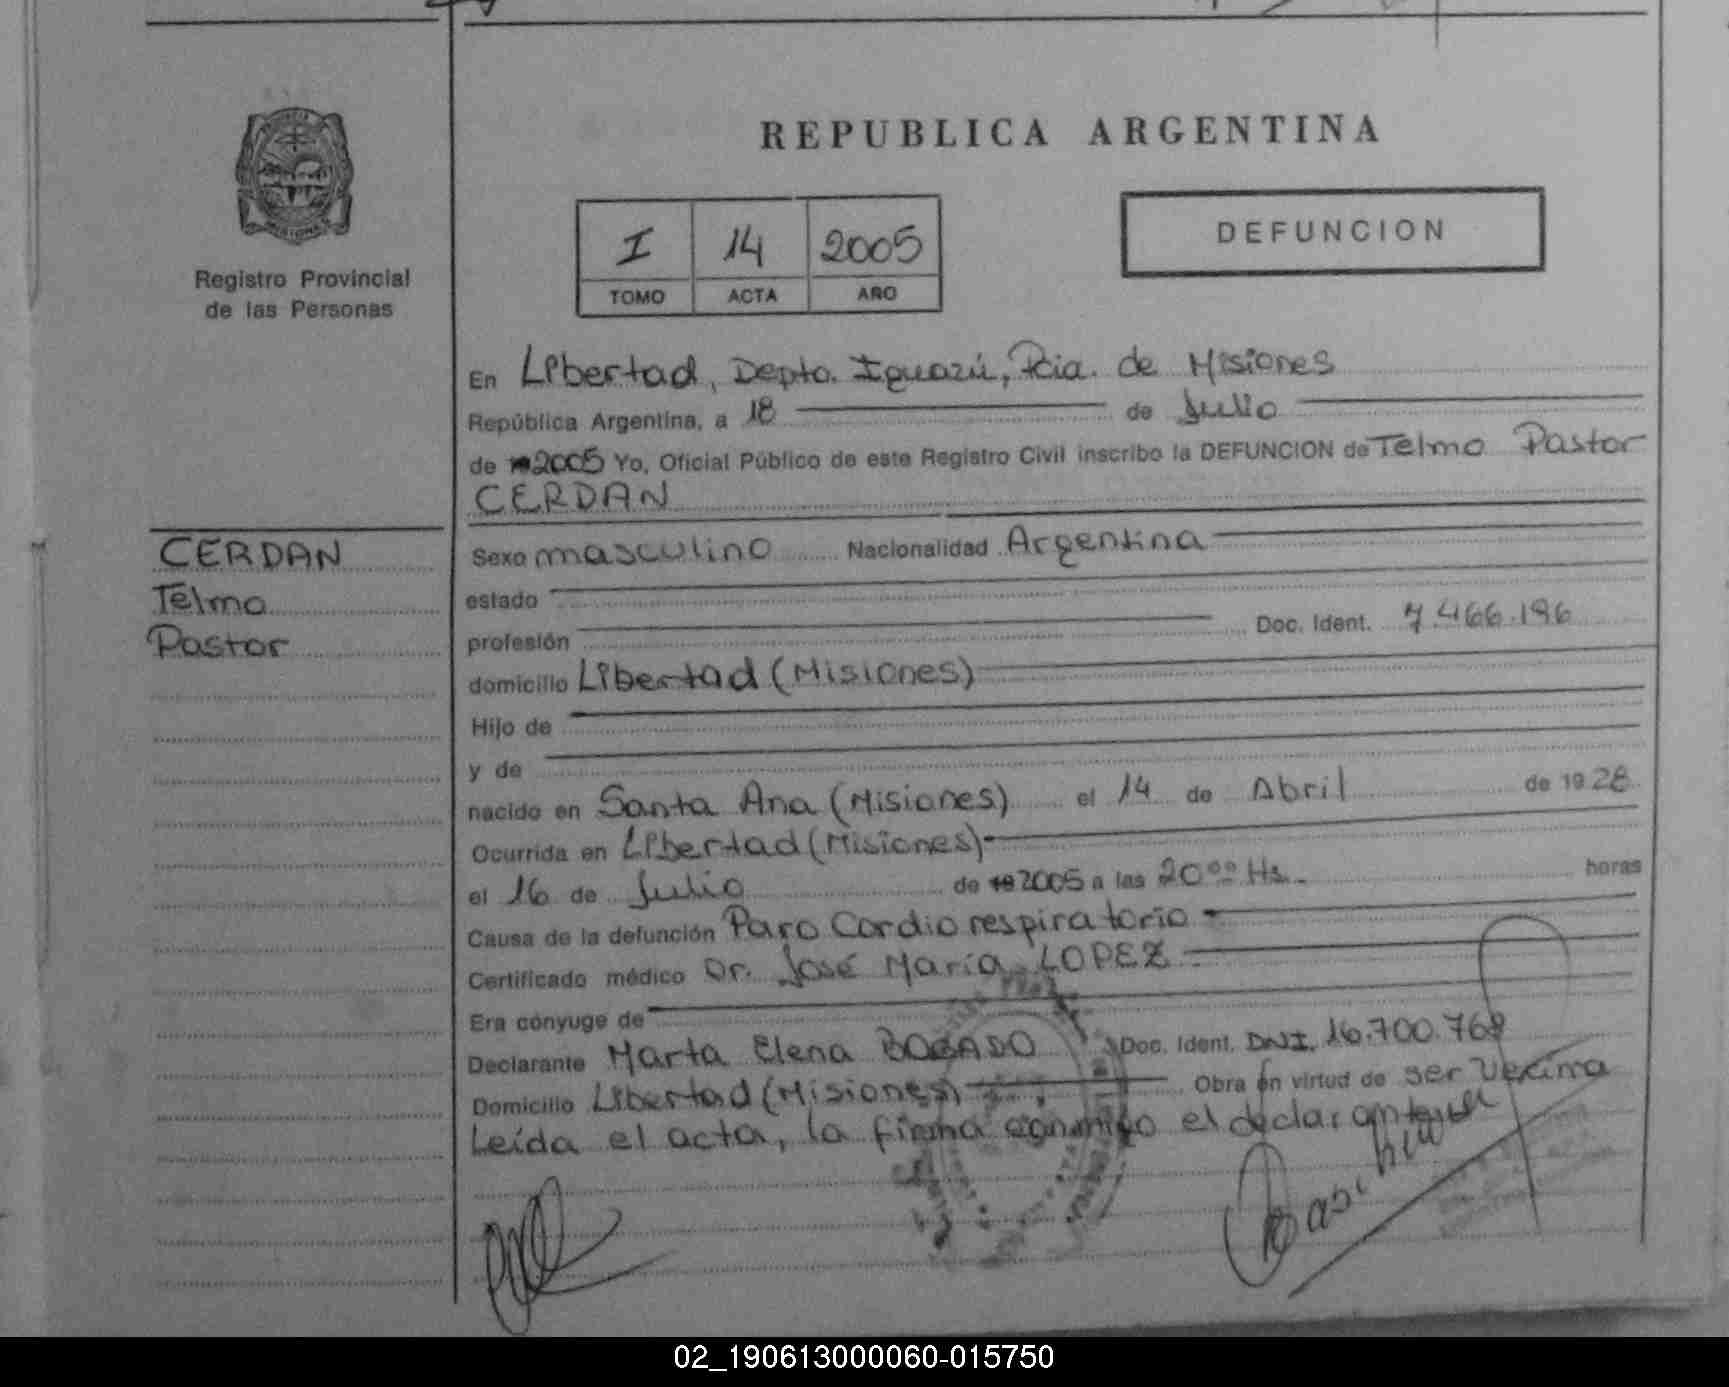 REPUBLICA ARGENTINA
I 14 2005
TOMO ACTA AÑO
DEFUNCION
Registro Provincial
de las Personas
En Libertad, Depto. Iguazú, Pcia. de Misiones
República Argentina, a 18 de Julio
de 2005 Yo, Oficial Público de este Registro Civil inscribo la DEFUNCION de Telmo Pastor
CERDAN
CERDAN
Telmo
Pastor
Sexo masculino Nacionalidad Argentina
estado
profesión Doc. Ident. 7.466.196
domicilio Libertad (Misiones)
Hijo de
y de
nacido en Santa Ana (Misiones) el 14 de Abril de 1928
Ocurrida en Libertad (Misiones)
el 16 de Julio de 19 2005 a las 20 00 Hs. horas
Causa de la defunción Paro Cardio respiratorio
Certificado médico Dr. José María LOPEZ
Era cónyuge de
Declarante Marta Elena BOBADO Doc. Ident. DNI. 16.700.768
Domicilio Libertad (Misiones) Obra en virtud de ser Vecina
Leída el acta, la firma conmigo el declarante
02_190613000060-015750